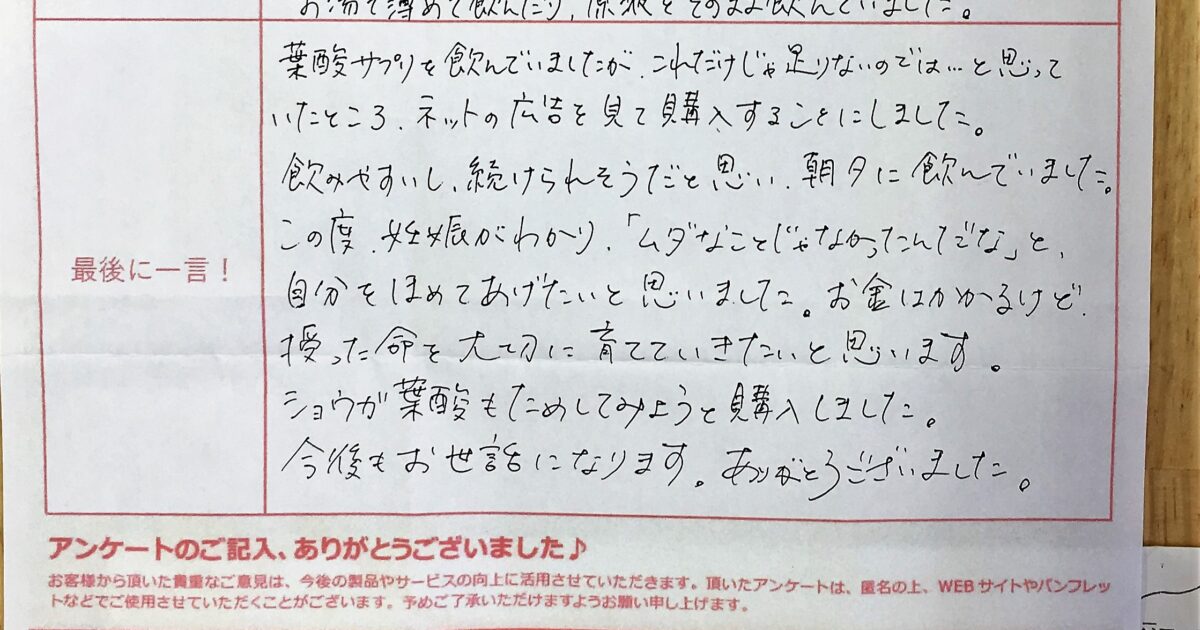 お湯で薄めて飲んだり、原液をそのまま飲んでいました。
葉酸サプリを飲んでいましたが、これだけじゃ足りないのでは…と思って
いたところ、ネットの広告を見て購入することにしました。
飲みやすいし、続けられそうだと思い、朝夕に飲んでいました。
この度、妊娠がわかり、「ムダなことじゃなかったんだな」と、
最後に一言！
自分をほめてあげたいと思いました。お金はかかるけど、
授った命を大切に育てていきたいと思います。
ショウガ葉酸もためしてみようと購入しました。
今後もお世話になります。ありがとうございました。
アンケートのご記入、ありがとうございました♪
お客様から頂いた貴重なご意見は、今後の製品やサービスの向上に活用させていただきます。頂いたアンケートは、匿名の上、WEBサイトやパンフレッ
トなどでご使用させていただくことがございます。予めご了承いただけますようお願い申し上げます。